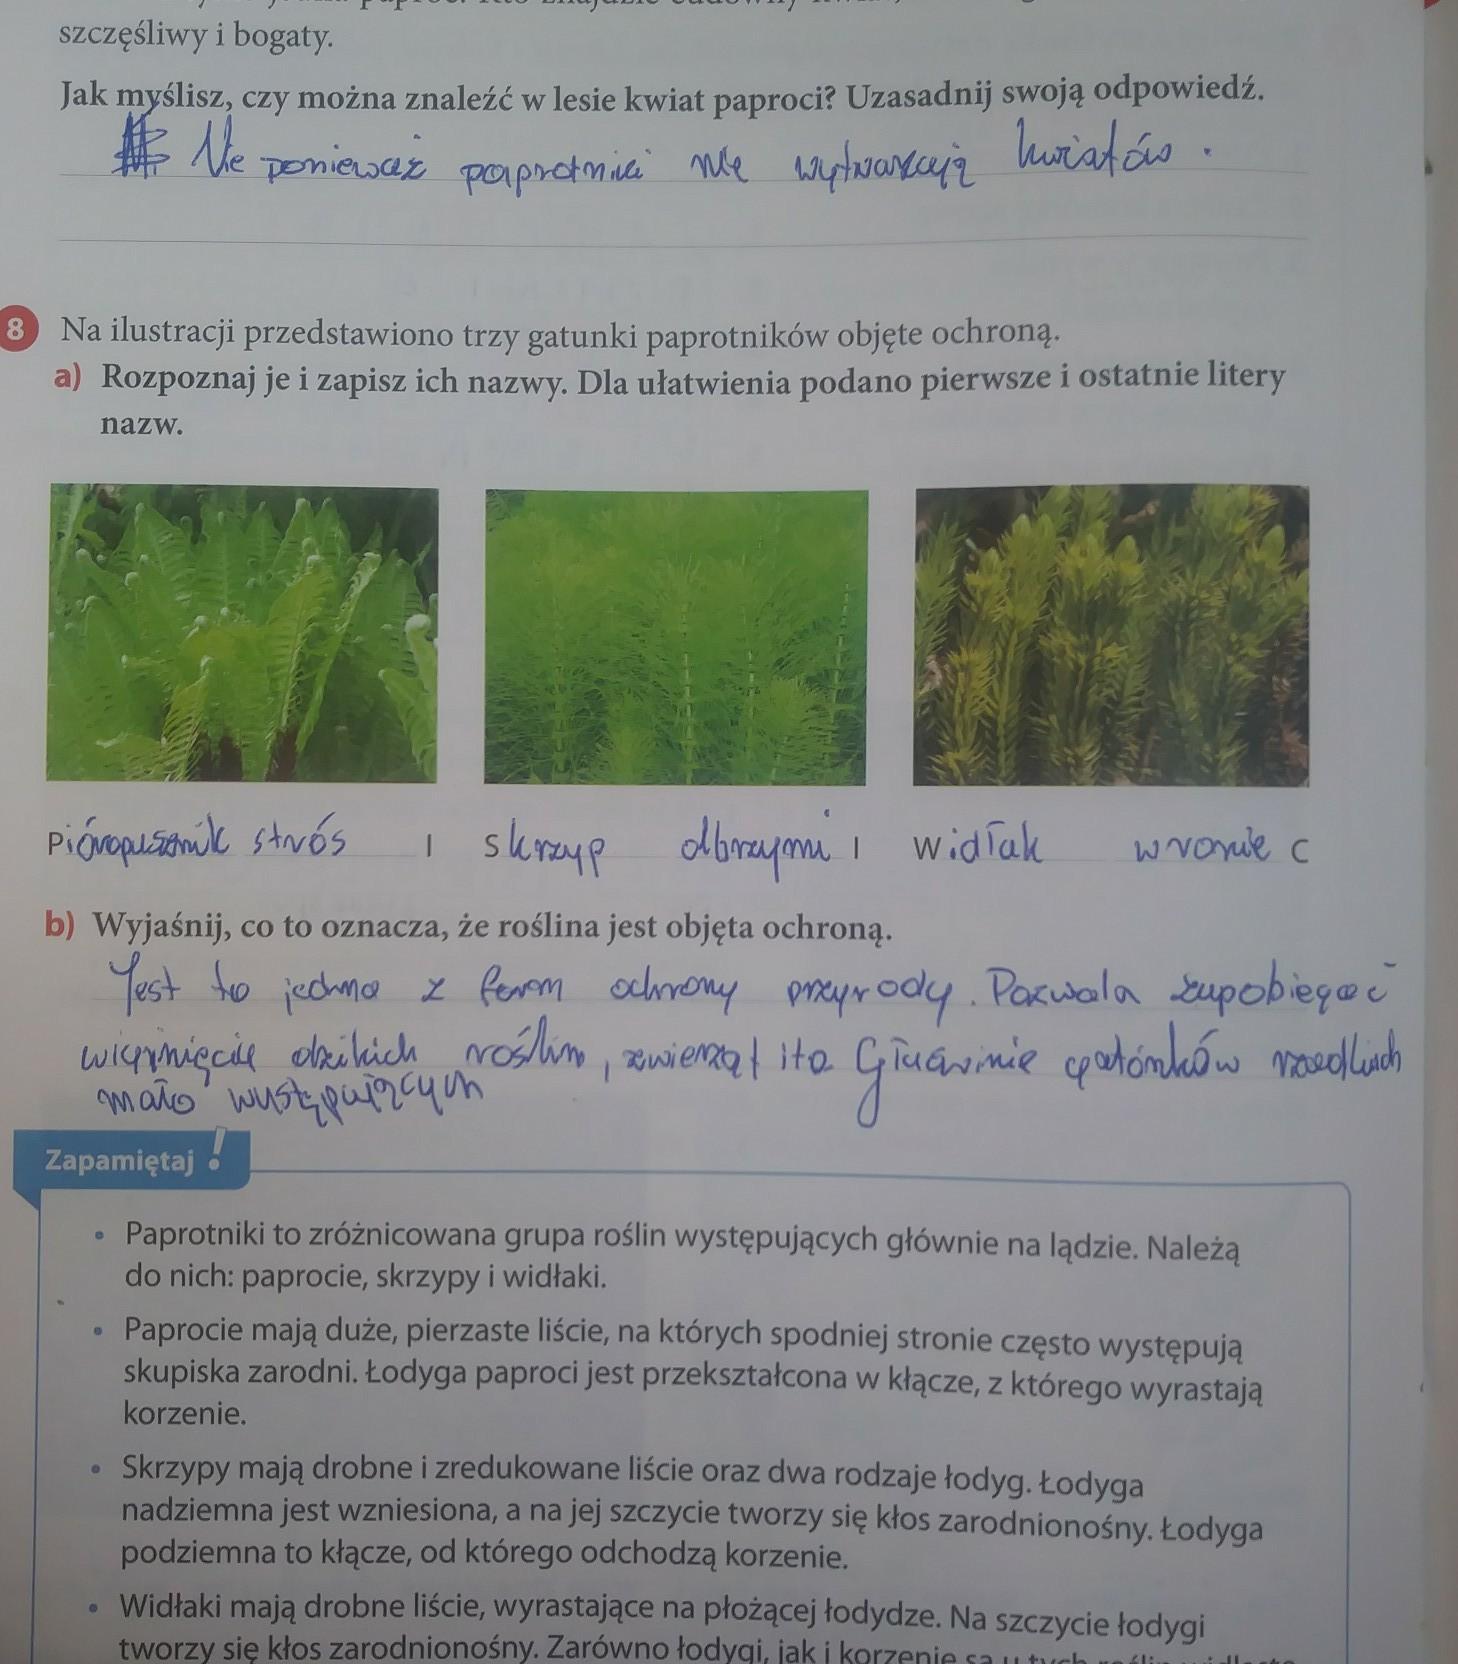 szczęśliwy i bogaty.
Jak myślisz, czy można znaleźć w lesie kwiat paproci? Uzasadnij swoją odpowiedź.
Nie ponieważ paprotniki nie wytwarzają kwiatów.
8 Na ilustracji przedstawiono trzy gatunki paprotników objęte ochroną.
a) Rozpoznaj je i zapisz ich nazwy. Dla ułatwienia podano pierwsze i ostatnie litery
nazw.
Pióropusznik strós I skrzyp olbrzymi I widłak wronie C
b) Wyjaśnij, co to oznacza, że roślina jest objęta ochroną.
Jest to jedna z form ochrony przyrody. Pozwala zapobiegać
wyginięcie dzikich roślin, zwierząt itd. Głównie gatónków rzadkich
mało występujących
Zapamiętaj!
• Paprotniki to zróżnicowana grupa roślin występujących głównie na lądzie. Należą
do nich: paprocie, skrzypy i widłaki.
• Paprocie mają duże, pierzaste liście, na których spodniej stronie często występują
skupiska zarodni. Łodyga paproci jest przekształcona w kłącze, z którego wyrastają
korzenie.
• Skrzypy mają drobne i zredukowane liście oraz dwa rodzaje łodyg. Łodyga
nadziemna jest wzniesiona, a na jej szczycie tworzy się kłos zarodnionośny. Łodyga
podziemna to kłącze, od którego odchodzą korzenie.
• Widłaki mają drobne liście, wyrastające na płożącej łodydze. Na szczycie łodygi
tworzy się kłos zarodnionośny. Zarówno łodygi, jak i korzenie są u tych